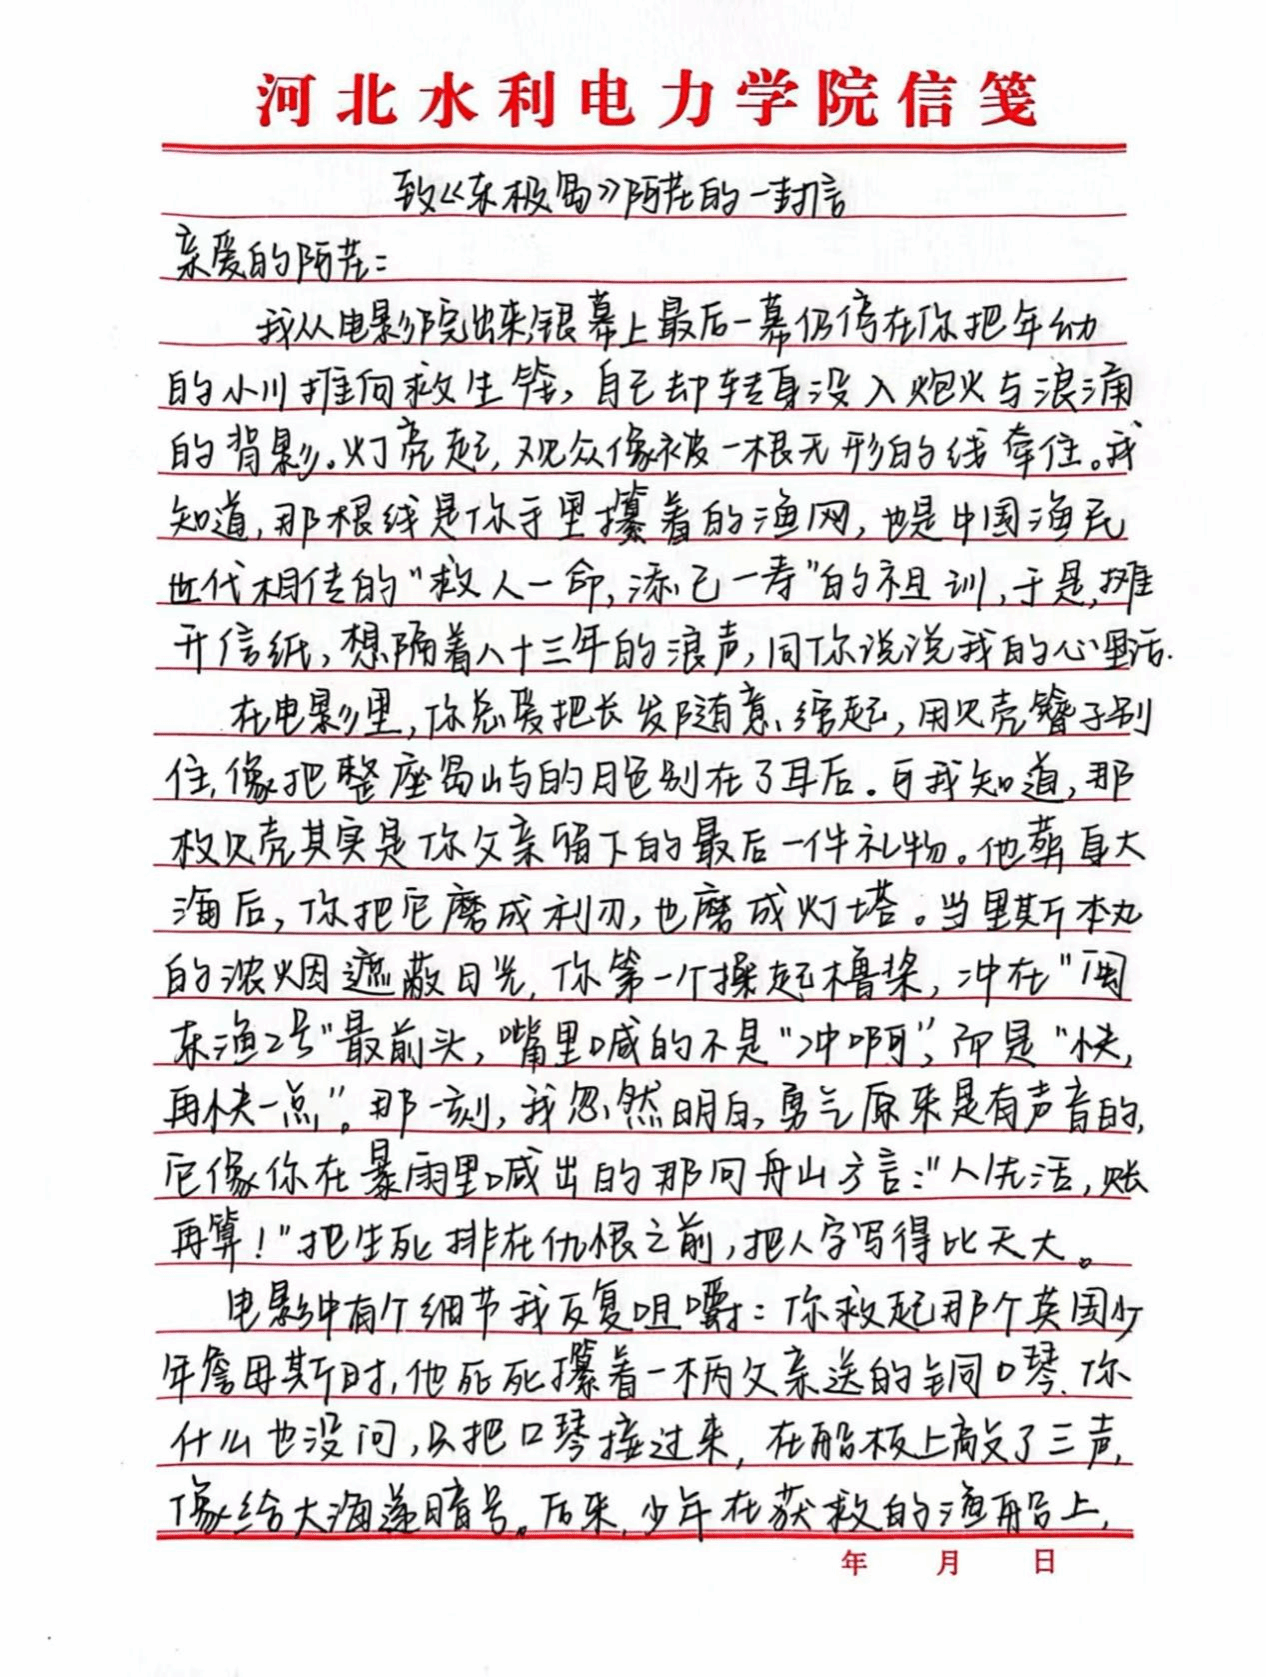 河北水利电力学院信笺
致《东极岛》阿花的一封信
亲爱的阿花：
我从电影院出来,银幕上最后一幕仍停在你把年幼
的小川推向救生筏，自己却转身没入炮火与浪涌
的背影。灯亮起，观众像被一根无形的线牵住。我
知道，那根线是你手里攥着的渔网，也是中国渔民
世代相传的“救人一命，添己一寿”的祖训，于是，摊
开信纸，想隔着八十三年的浪声，同你说说我的心里话.
在电影里，你总爱把长发随意绾起，用贝壳簪子别
住，像把整座岛屿的月色别在了耳后。可我知道，那
枚贝壳其实是你父亲留下的最后一件礼物。他葬身大
海后，你把它磨成利刃，也磨成灯塔。当里斯本丸
的浓烟遮蔽日光，你第一个操起橹桨，冲在“闽
东渔2号”最前头，嘴里喊的不是“冲啊”，而是“快，
再快一点”。那一刻，我忽然明白，勇气原来是有声音的，
它像你在暴雨里喊出的那句舟山方言：“人先活，账
再算！”把生死排在仇恨之前，把人字写得比天大。
电影中有个细节我反复咀嚼：你救起那个英国少
年詹姆斯时，他死死攥着一柄父亲送的铜口琴、你
什么也没问，只把口琴接过来，在船板上敲了三声，
像给大海递暗号。后来，少年在获救的渔船上，
年 月 日